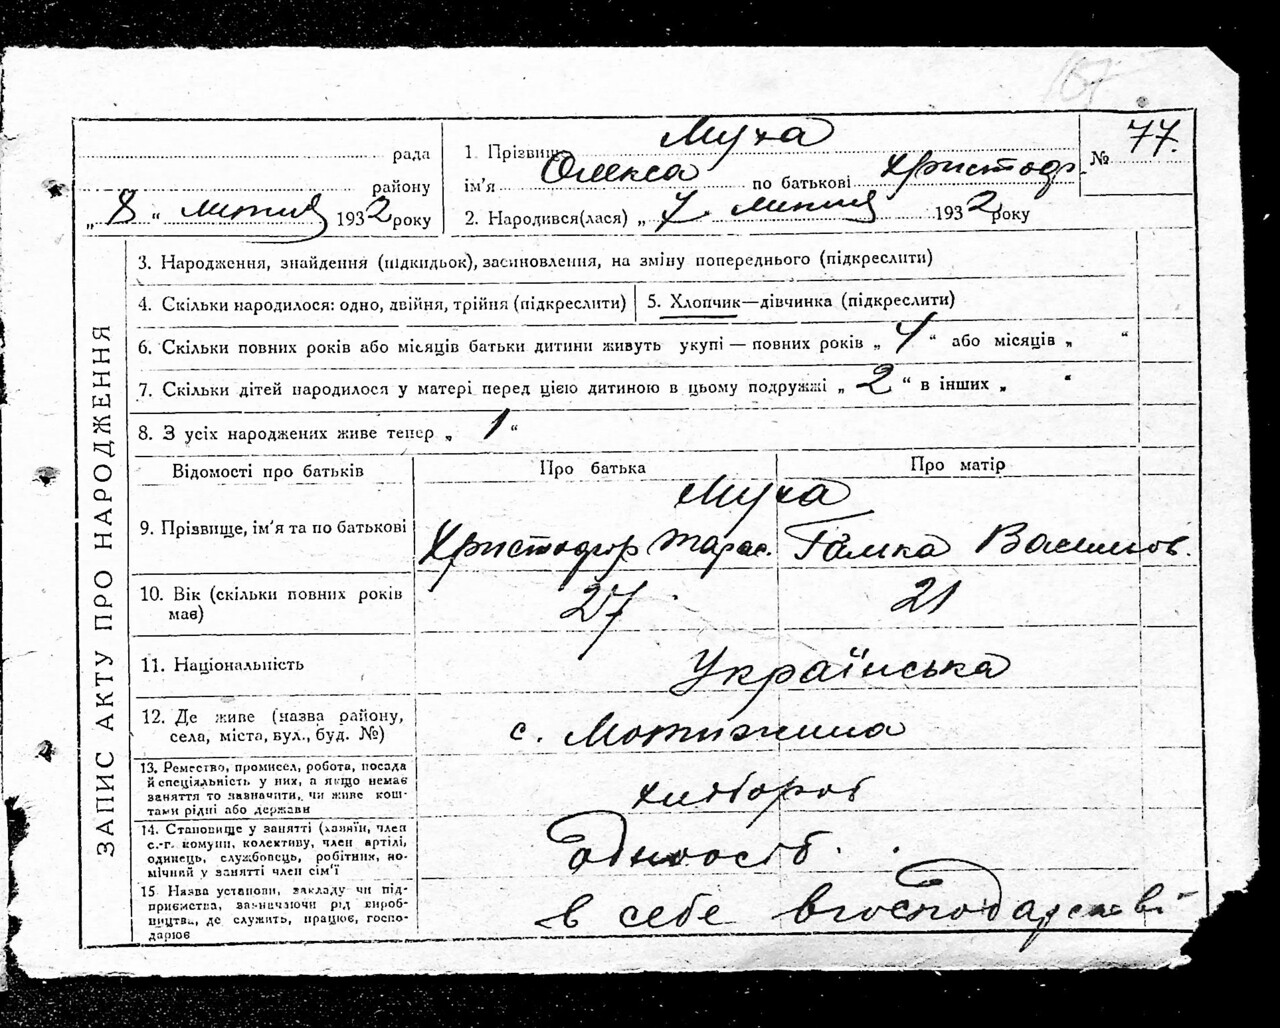 167
ЗАПИС АКТУ ПРО НАРОДЖЕННЯ
рада
району
„ 8 “ липня 1932 року
1. Прізвище Муха
ім'я Олекса по батькові Христофор.
2. Народився(лася) „ 7 липня 1932 року
№ 77.
3. Народження, знайдення (підкидьок), засиновлення, на зміну попереднього (підкреслити)
4. Скільки народилося: одно, двійня, трійня (підкреслити)
5. Хлопчик—дівчинка (підкреслити)
6. Скільки повних років або місяців батьки дитини живуть укупі — повних років „ 4 “ або місяців „ “
7. Скільки дітей народилося у матері перед цією дитиною в цьому подружжі „ 2 “ в інших „ “
8. З усіх народжених живе тепер „ 1 “
Відомості про батьків
Про батька
Про матір
9. Прізвище, ім'я та по батькові
Муха
Христофор Тарас. Галька Васильов.
10. Вік (скільки повних років
має)
27
21
11. Національність
Українська
12. Де живе (назва району,
села, міста, вул., буд. №)
с. Мотижина
13. Ремество, промисел, робота, посада
й спеціяльність у них, а якщо немає
заняття то зазначити, чи живе кош-
тами рідні або держави
хлібороб
14. Становище у занятті (хазяїн, член
с.-г. комуни, колективу, член артілі,
одинець, службовець, робітник, по-
мічний у занятті член сім'ї
одноосіб.
15 Назва установи, закладу чи під-
приємства, зазначаючи рід вироб-
ництва, де служить, працює, госпо-
дарює
в себе в господарстві